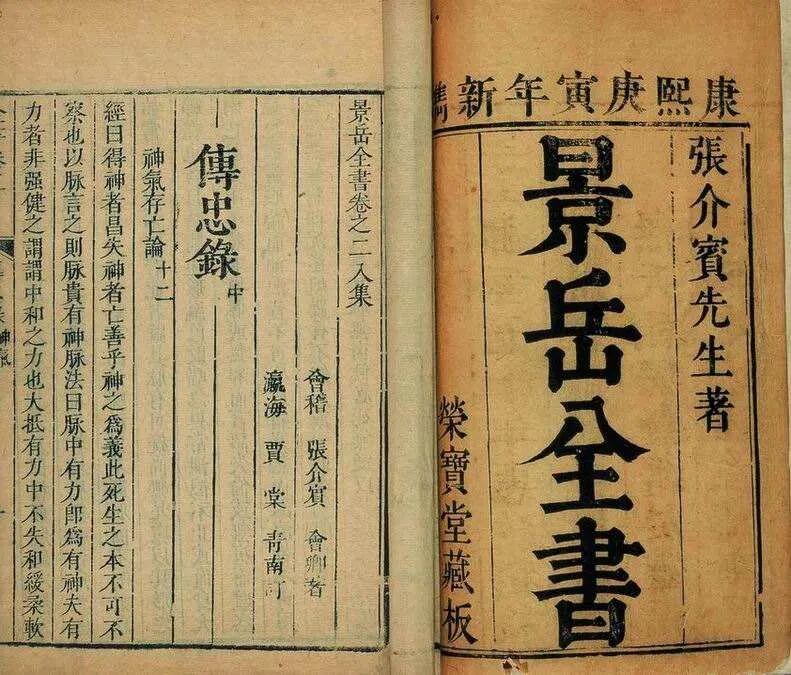 康熙庚寅年新鐫
張介賓先生著
景岳全書
榮寶堂藏板
景岳全書卷之二入集
會稽 張介賓 會卿著
瀛海 賈棠 青南訂
傳忠錄 中
神氣存亡論 十二
經曰得神者昌失神者亡善乎神之為義此死生之本不可不
察也以脉言之則脉貴有神脉法曰脉中有力即為有神夫有
力者非强健之謂謂中和之力也大抵有力中不失和緩柔軟